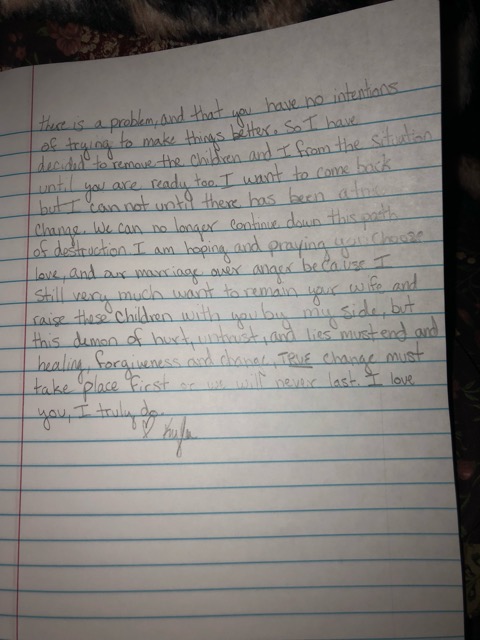 there is a problem, and that you have no intentions
of trying to make things better. So I have
decided to remove the children and I from the situation
until you are ready too. I want to come back
but I can not until there has been a true
change. We can no longer continue down this path
of destruction I am hoping and praying you choose
love, and our marriage over anger because I
still very much want to remain your wife and
raise these children with you by my side, but
this demon of hurt, untrust, and lies must end and
healing, forgiveness and change, TRUE change must
take place first or we will never last. I love
you, I truly do.